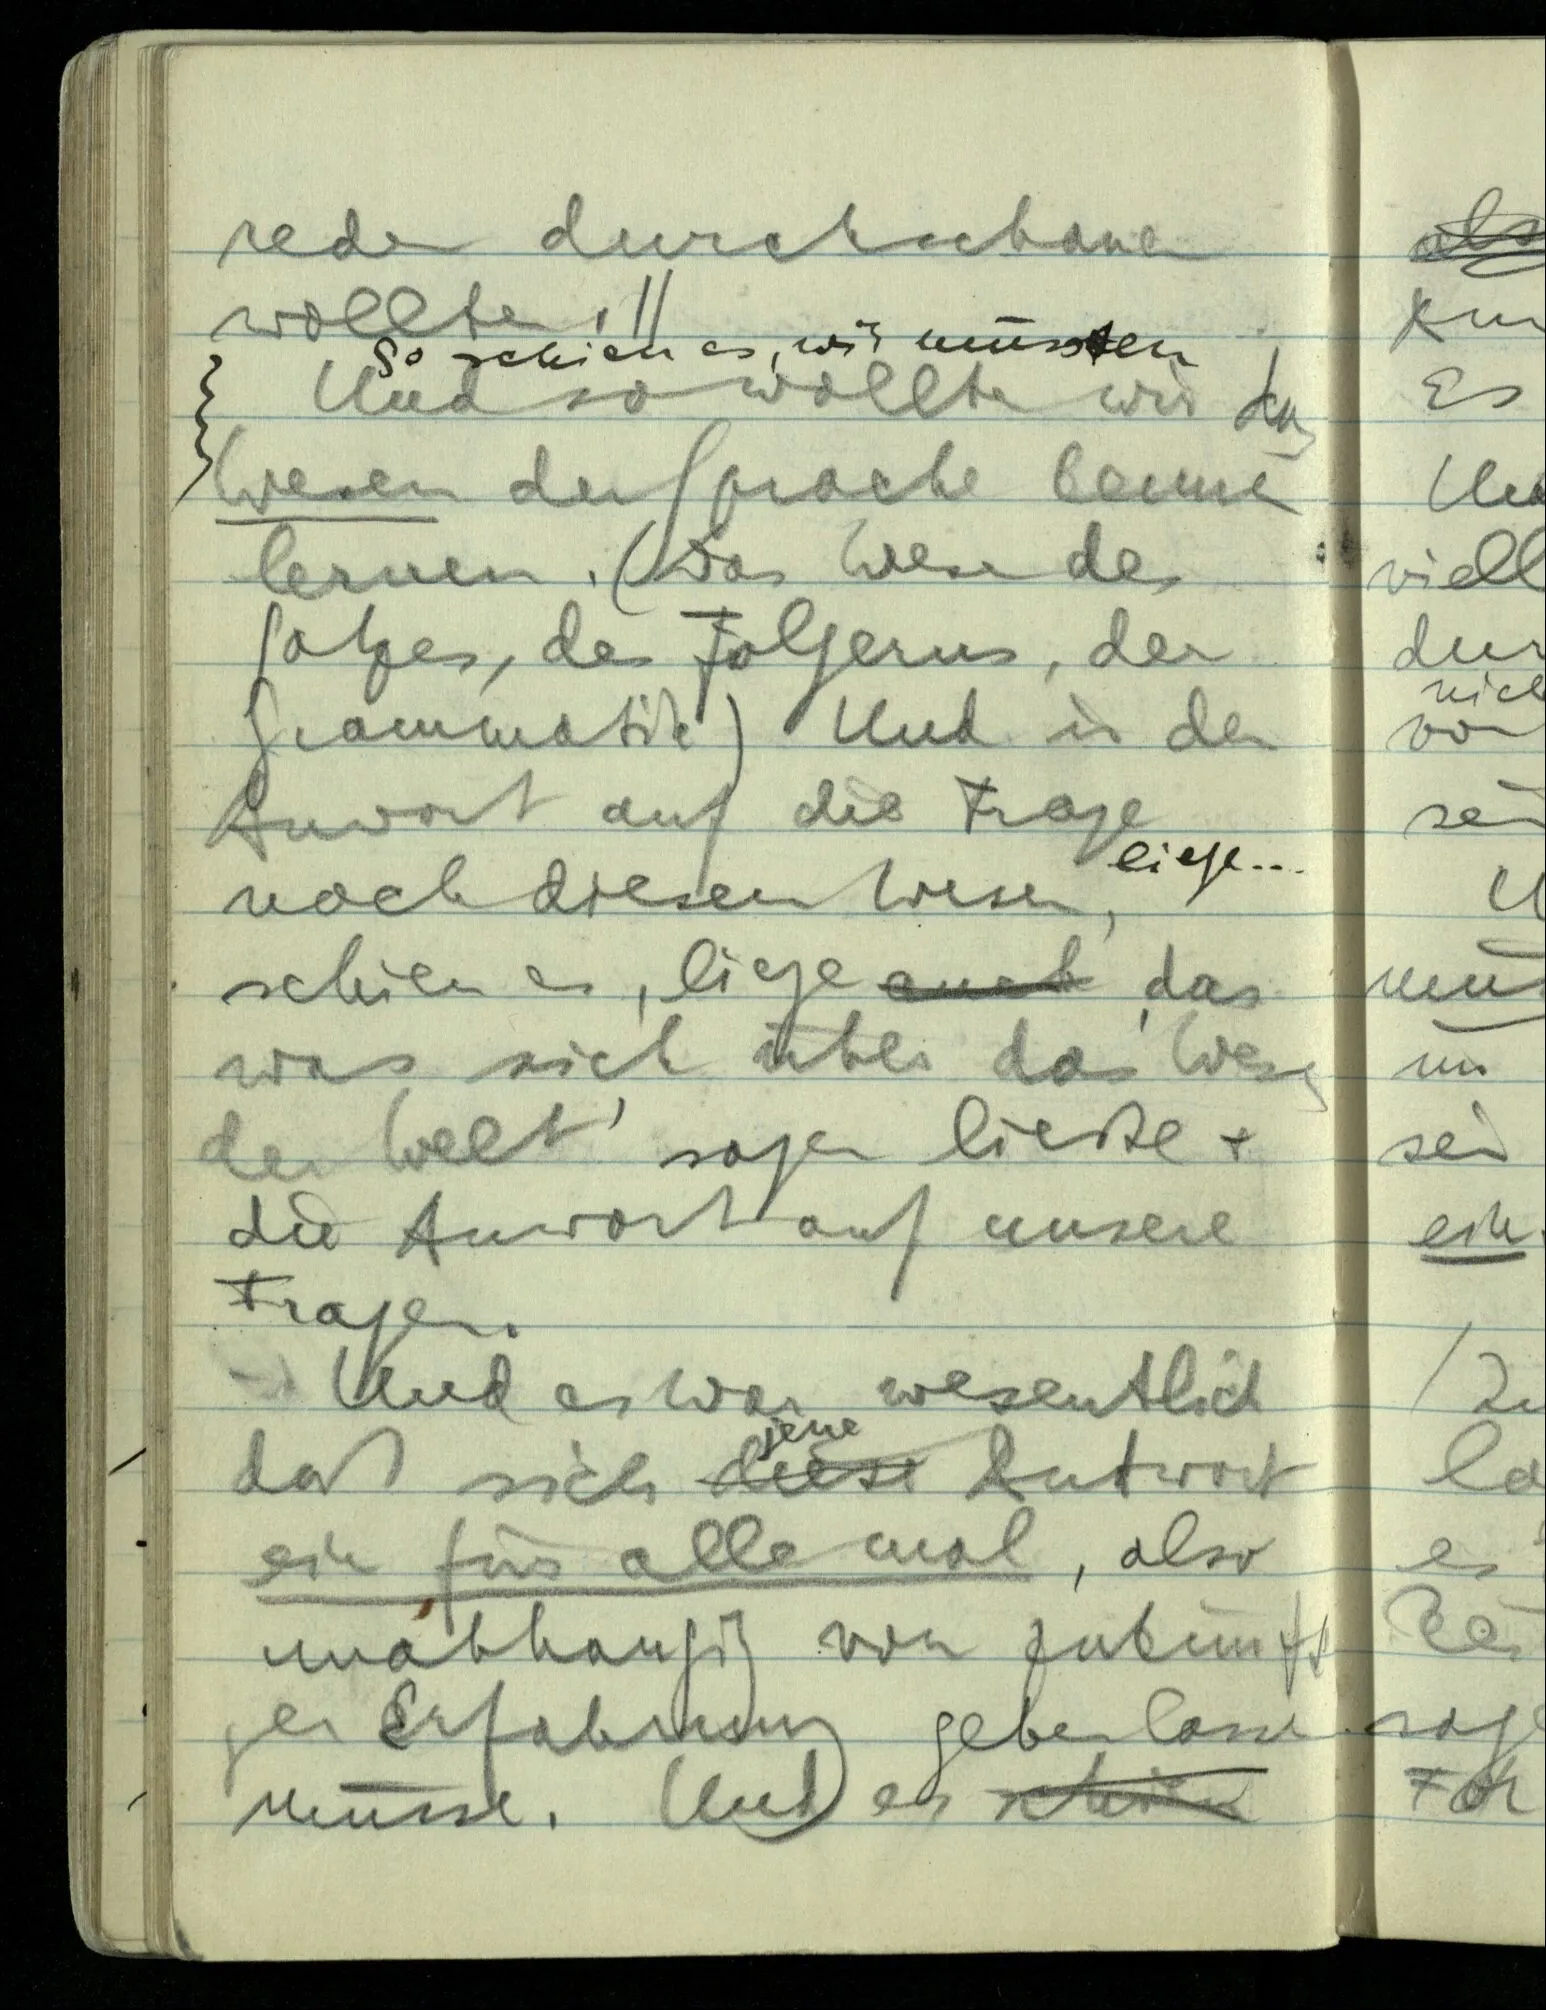 reden durchschauen
wollten.||
So schien es, wir müssten
Und so wollten wir das
Wesen der Sprache kennen
lernen. (Das Wesen des
Satzes, des Folgerns, der
Grammatik) Und in der
Anwort auf die Frage
liege....
nach diesem Wesen,
schien es, liege auch, das
was sich über das 'Wesen
der Welt' sagen ließe +
die Anwort auf unsere
Fragen.
Und es war wesentlich
jene
daß sich diese Antwort
ein für alle mal, also
unabhängig von zukünfti
ger Erfahrung geben lassen
müsse. Und es schien
als
Es
Und
viell
dur
nich
vor
sei
müs
un
sei
ein
es
sage